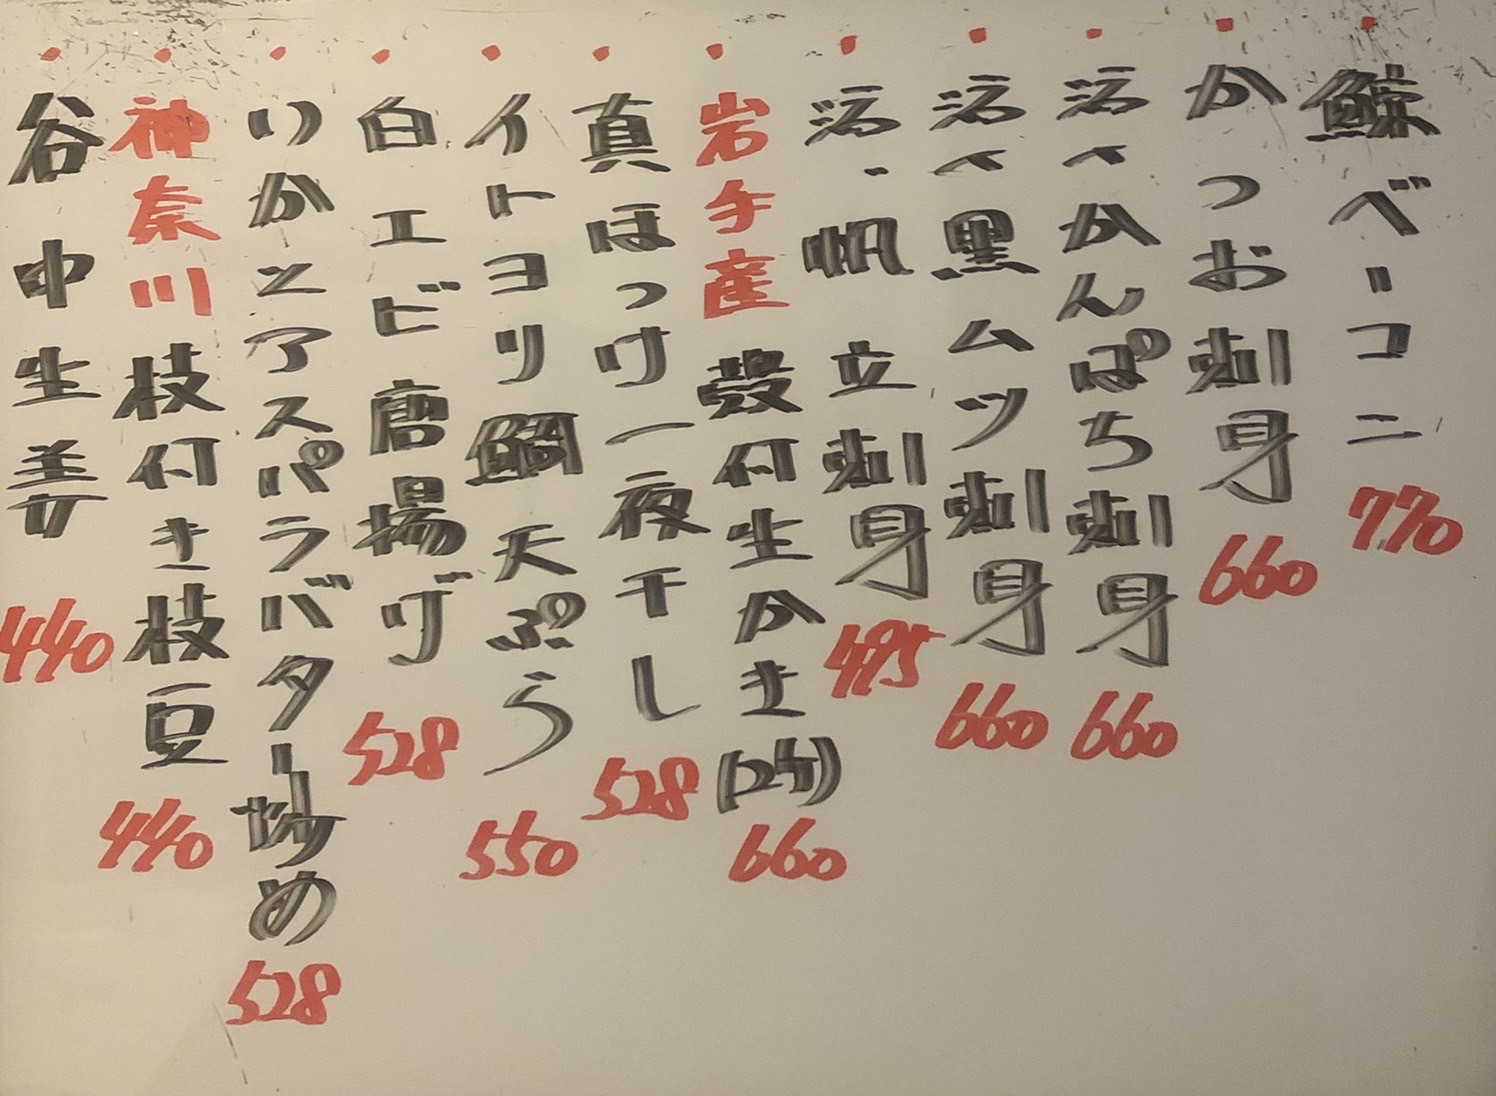 ・鯨ベーコン 770
・かつお刺身 660
・活〆かんぱち刺身 660
・活〆黒ムツ刺身 660
・活・帆立刺身 495
・岩手産殻付生かき(2ケ) 660
・真ほっけ一夜干し 528
・イトヨリ鯛天ぷら 550
・白エビ唐揚げ 528
・いかとアスパラバター炒め 528
・神奈川枝付き枝豆 440
・谷中生姜 440